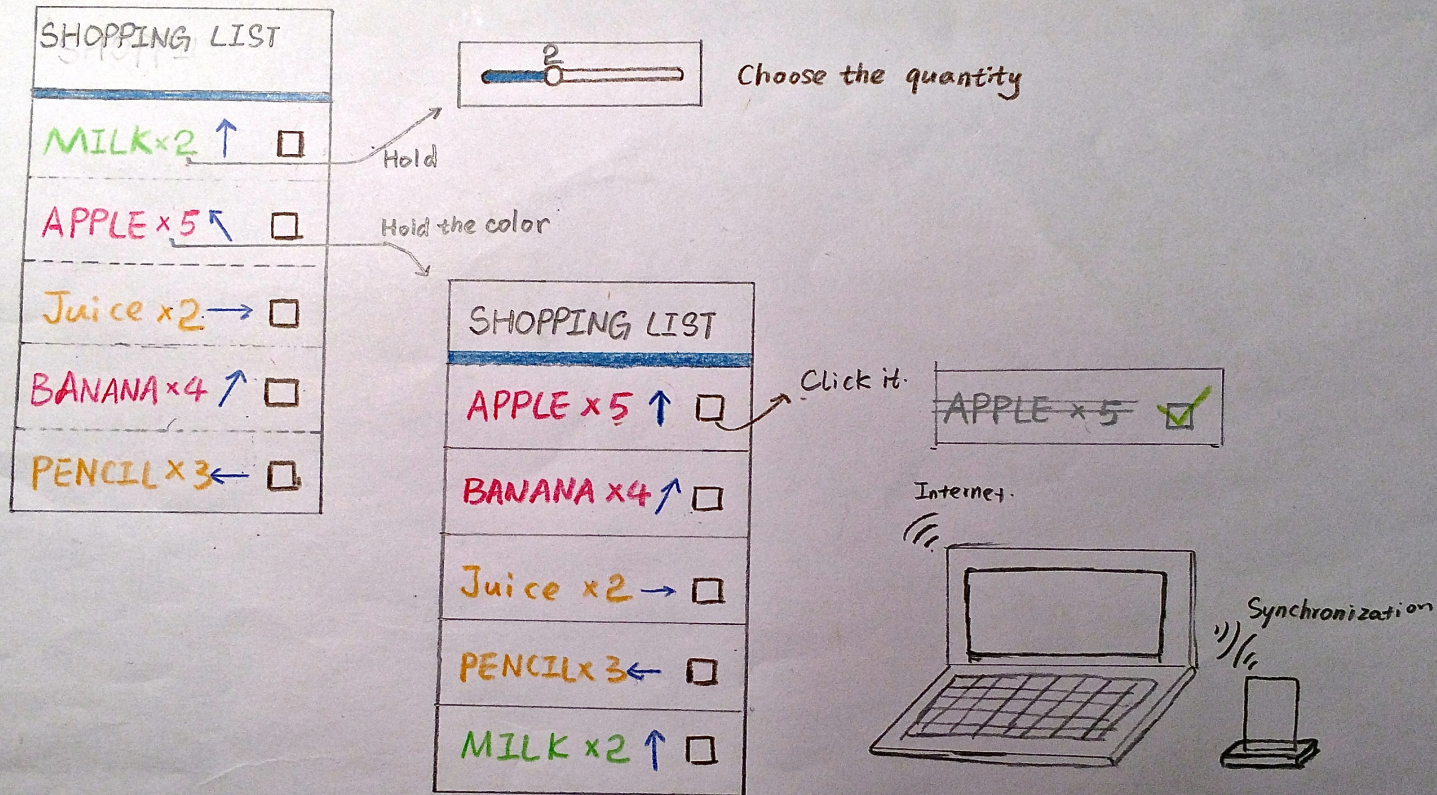 SHOPPING LIST
MILK × 2 ↑
APPLE × 5 ↖
Juice × 2 →
BANANA × 4 ↗
PENCIL × 3 ←
2
Choose the quantity
Hold
Hold the color
SHOPPING LIST
APPLE × 5 ↑
BANANA × 4 ↗
Juice × 2 →
PENCIL × 3 ←
MILK × 2 ↑
Click it.
APPLE × 5
Internet.
Synchronization